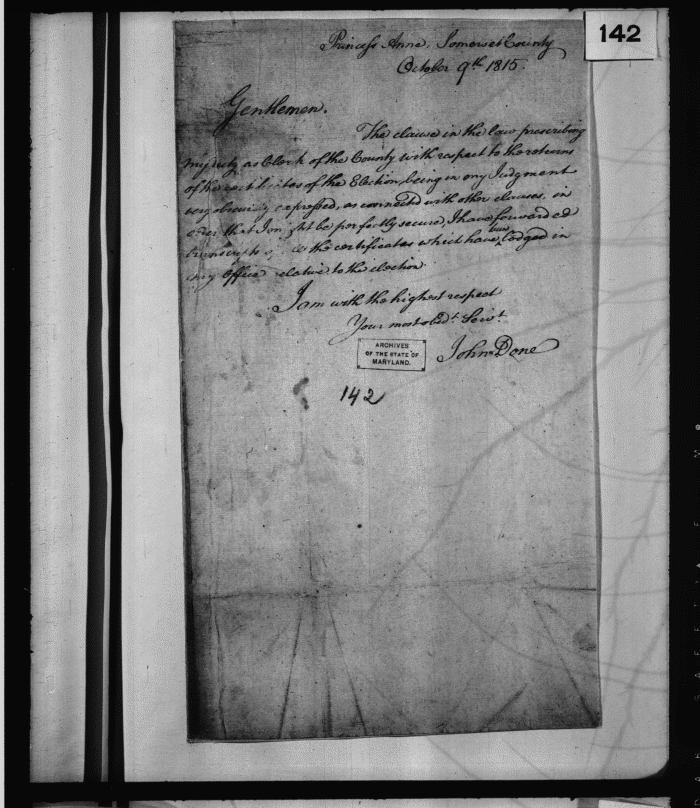 142
Princess Anne, Somerset County
October 9th 1815.
Gentlemen.
The clause in the law prescribing
my duty as Clerk of the County with respect to the returns
of the certificates of the Election, being in my Judgment
very obscurely expressed, as connected with other clauses, in
order that I might be perfectly secure, I have forwarded
transcripts the certificates which have been lodged in
my Office relative to the election
I am with the highest respect
Your most obdt. Servt.
John Done
ARCHIVES
OF THE STATE OF
MARYLAND.
142